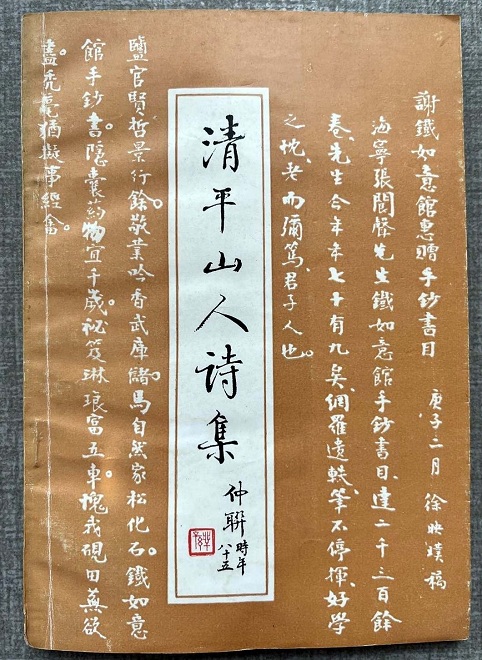 謝鐵如意館惠贈手鈔書目 庚子二月 徐映璞稿
海寧張閬聲先生鐵如意館手鈔書目、達二千三百餘
卷、先生今年年七十有九矣、網羅遺軼、筆不停揮、好學
之忱、老而彌篤、君子人也。
清平山人诗集
仲聯
時年
八十五
鹽官賢哲景行餘。敬業吟香武庫儲。馬自然家松化石。鐵如意
館手鈔書。隱囊药物宜千歲。祕笈琳琅富五車。愧我硯田蕪欲
盡。禿毫猶擬事經畬。